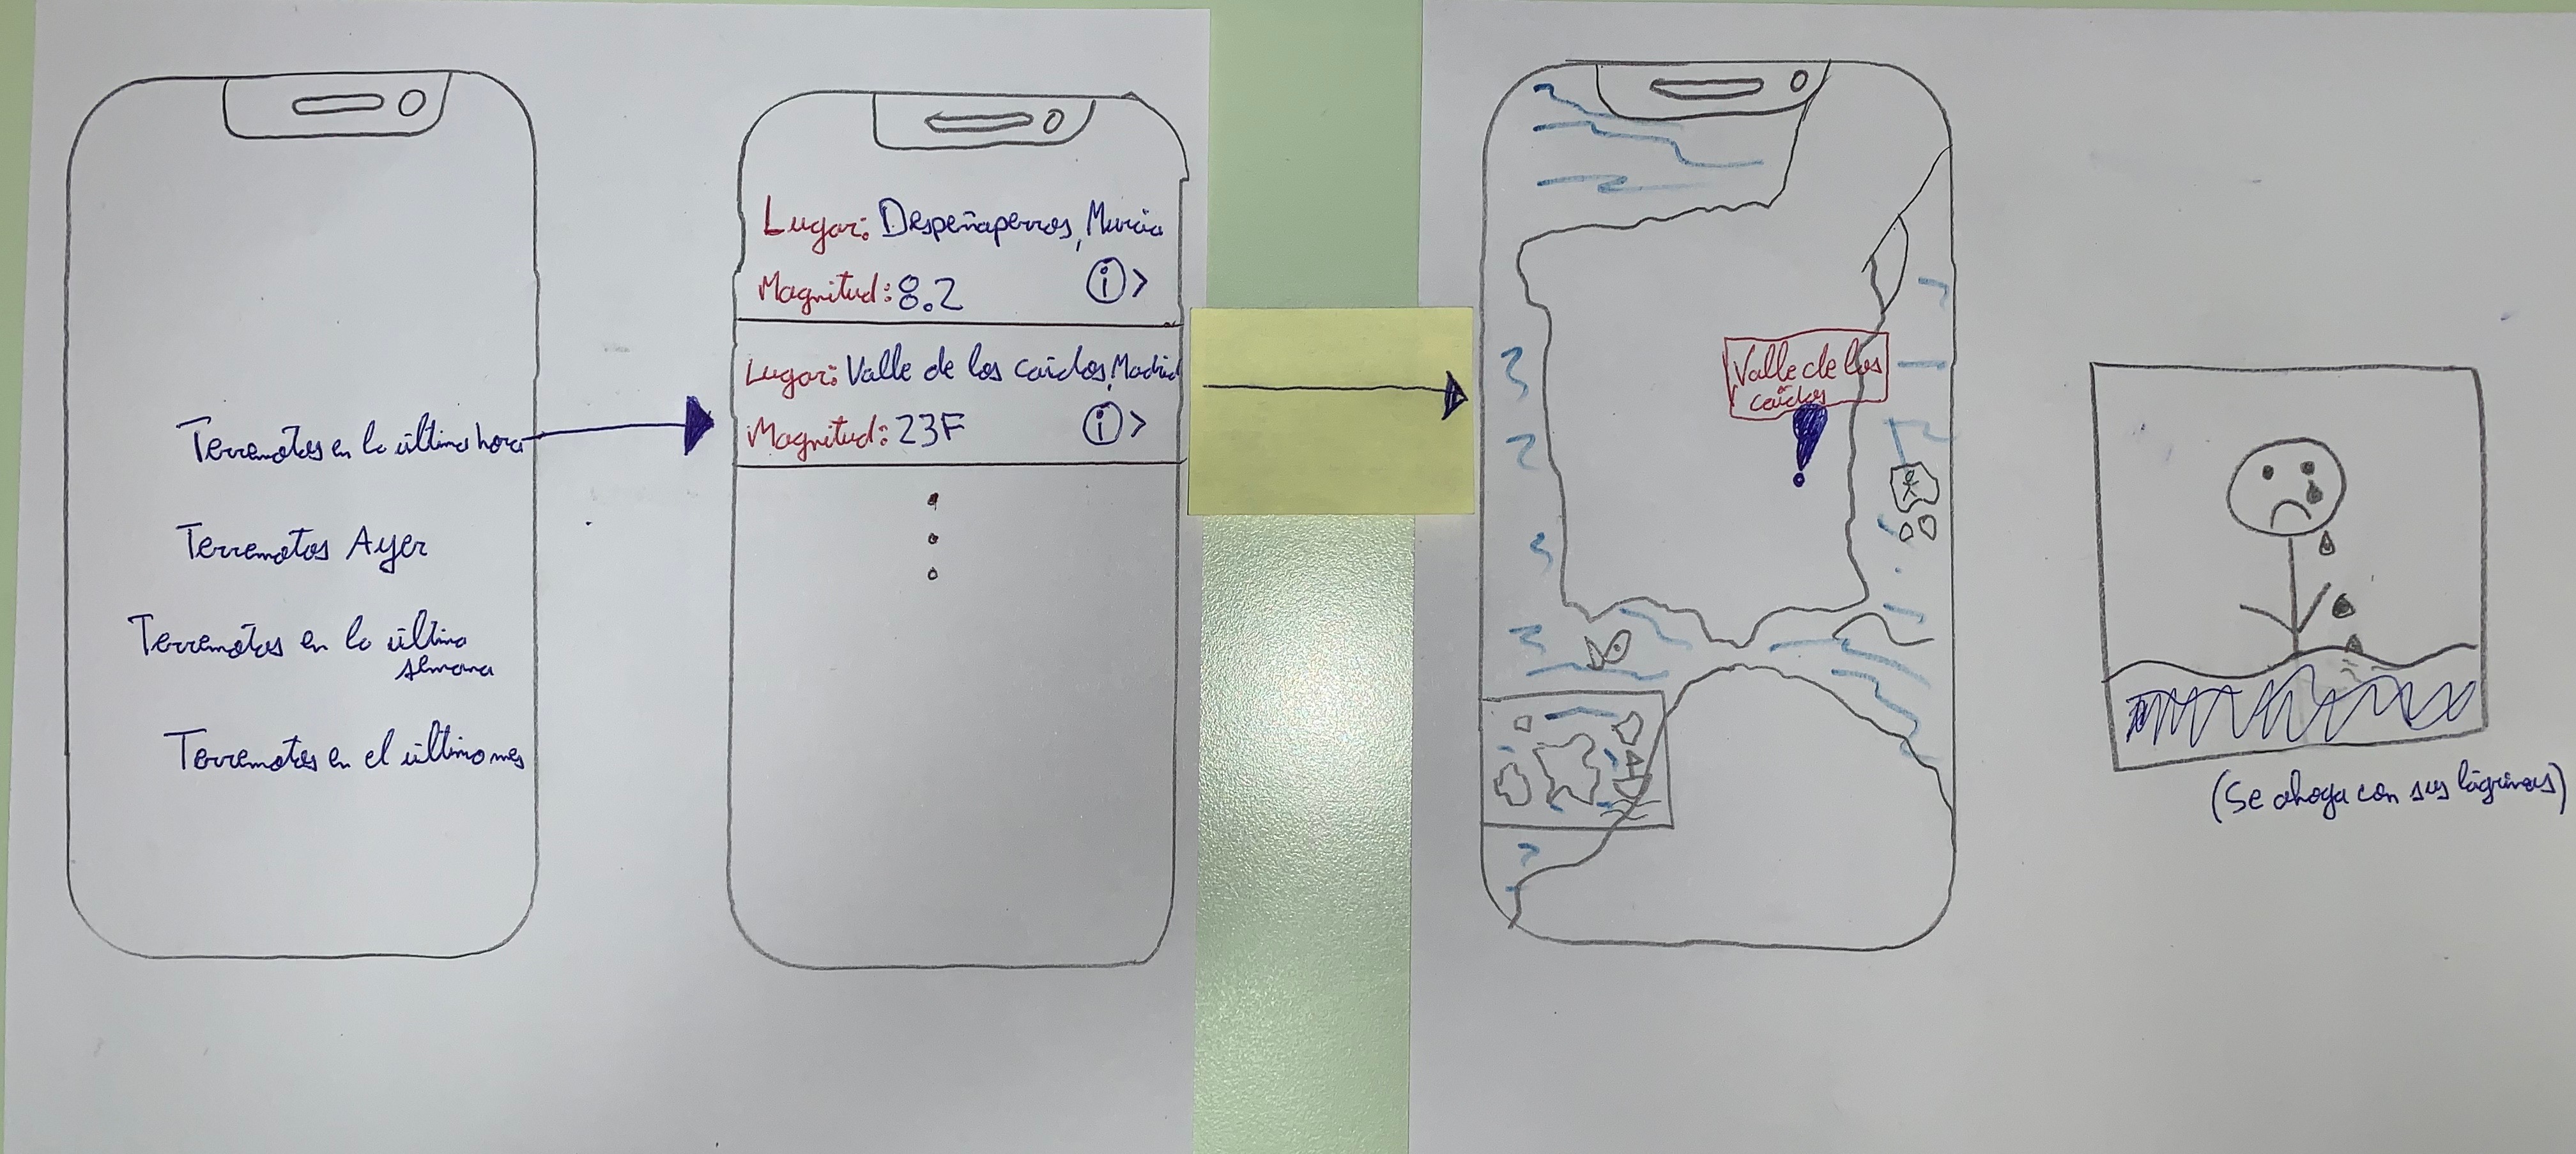 Terremotos en la última hora
Terremotos Ayer
Terremotos en la última
semana
Terremotos en el último mes
Lugar: Despeñaperros, Murcia
Magnitud: 8.2 i >
Lugar: Valle de los caídos, Madrid
Magnitud: 23F i >
Valle de los
caídos
(Se ahoga con sus lágrimas)